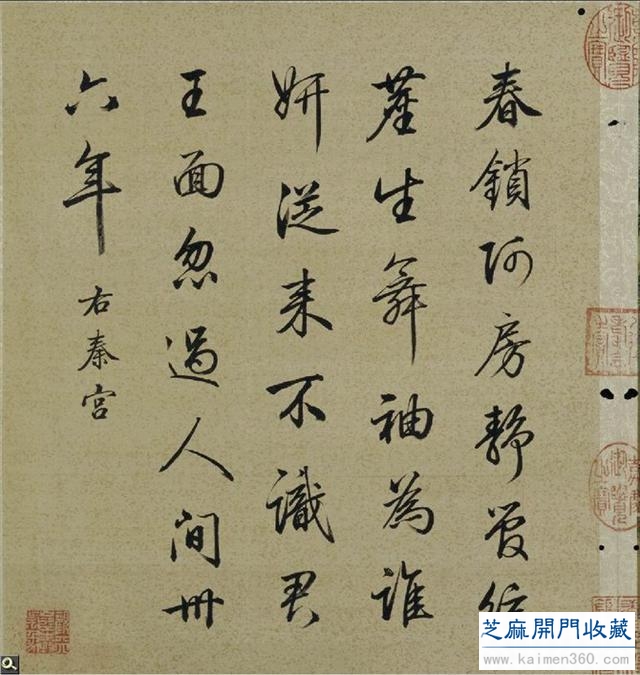 春鎖阿房靜管絃
塵生舞袖為誰
妍從来不識君
王面忽過人間卅
六年
右秦宮
芝麻開門收藏
www.kaimen360.com